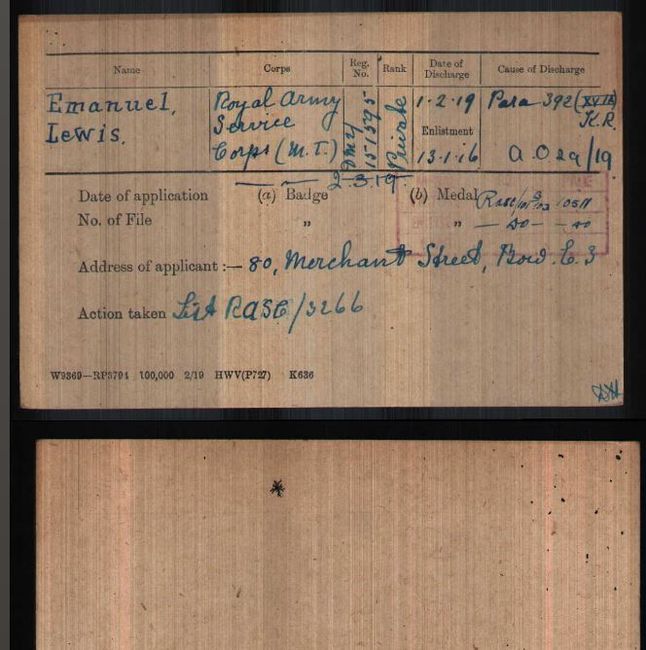 Name Corps Reg. No. Rank Date of Discharge Cause of Discharge
Emanuel, Royal Army 1·2·19 Para 392 (XVIa)
Lewis, Service Enlistment K.R.
Corps (M.T.) Private 13·1·16 A.O 29/19
2.3.19.
Date of application (a) Badge (b) Medal
No. of File " " — do — do
Address of applicant :— 80, Merchant Street, Bow. E. 3
Action taken List RASC/3266
W9369—RP3794 100,000 2/19 HWV(P727) K636